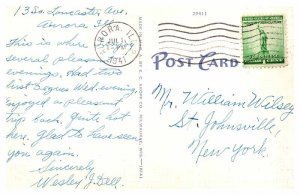 13 So. Lancaster Ave.
Aurora Ill.
This is where
several pleasant
evenings. Had two
first degrees Wed. evening.
Enjoyed a pleasant
trip back. Quite hot
here. Glad to have seen
you again.
Sincerely
Wesley J. Dell.
AURORA, ILL.
1941
29611
POST CARD
Mr. William Wilsey
St. Johnsville,
New York.